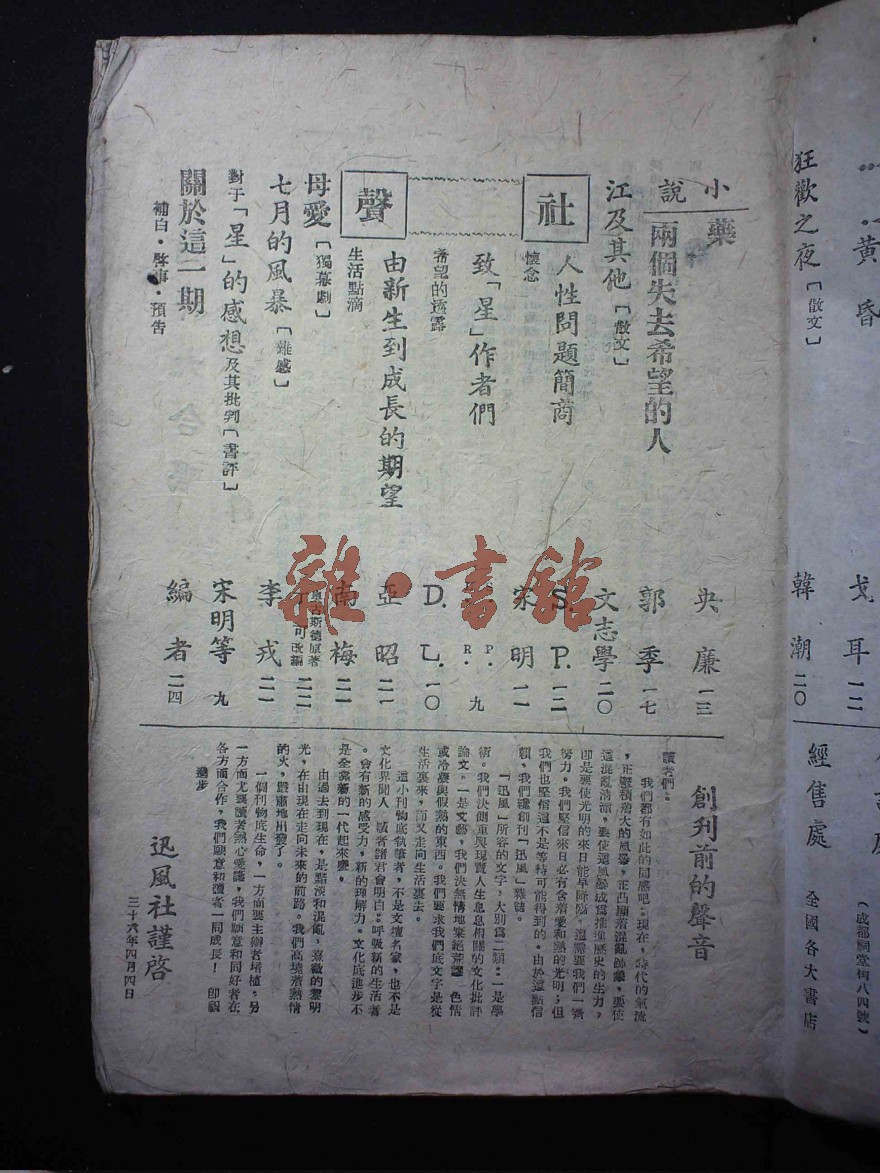 黃昏
戈耳 一二
狂歡之夜〔散文〕
韓潮 二〇
經售處
全國各大書店
小說
藥
央廉 一三
兩個失去希望的人
郭季 一七
江及其他〔散文〕
文志學 二〇
社
人性問題簡商
S. P. 一二
懷念
宋明 一一
致「星」作者們
九
希望的透露
D. L. 一〇
聲
由新生到成長的期望
亞昭 二一
生活點滴
南梅 二一
母愛〔獨幕劇〕
二二
七月的風暴〔雜感〕
李戎 二一
對于「星」的感想及其批判〔書評〕
宋明等 九
關於這一期
編者 二四
補白·啓事·預告
雜·書館
創刊前的聲音
讀者們：
我們都有如此的同感吧：現在，時代的氣流
努力。我們堅信來日必有含着愛和熱的光明；但
我們也堅信這不是等待可能得到的。由於這點信
願，我們籌創刊「迅風」雜誌。
「迅風」所容的文字，大別爲二類：一是學
術。我們決側重與現實人生息息相關的文化批評
論文。一是文藝，我們決無情地棄絕荒謬 色情
或冷靜與假熱的東西。我們要求我們底文字是從
生活裏來，而又走向生活裏去。
這小刊物底執筆者，不是文壇名家，也不是
文化界聞人 讀者諸君會明白：呼吸新的生活著
。會有新的感受力，新的理解力。文化底進步不
是全靠新的一代起來麼。
由過去到現在，是黯淡和混亂，熹微的黎明
光，在由現在走向未來的前路。我們高擎着熱情
的火，嚴肅地出發了。
一個刊物底生命，一方面要主辦者培植，另
一方面尤要讀者熱心愛護，我們願意和同好者在
各方面合作，我們願意和讀者一同成長！ 即祝
進步
迅風社謹啓
三十六年四月四日